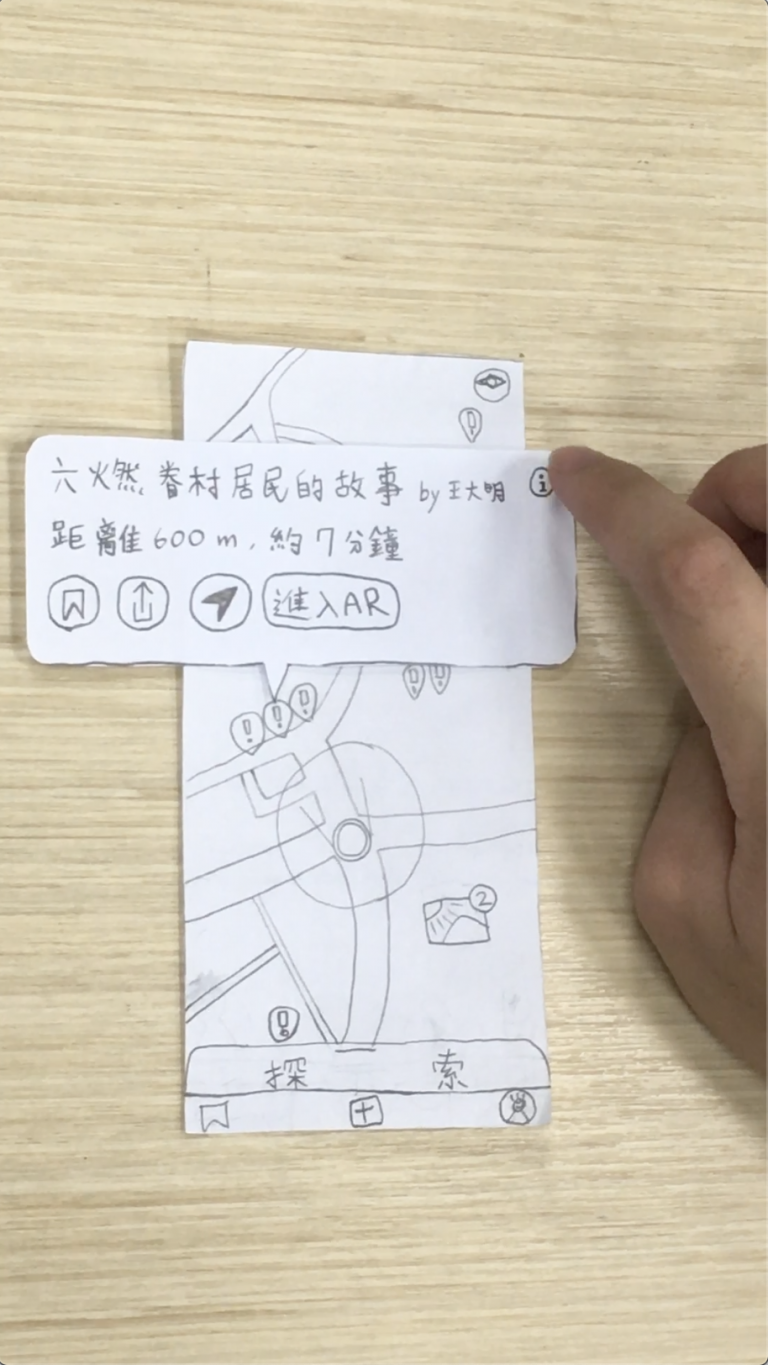 六燃眷村居民的故事 by 王大明
距離 600 m, 約 7 分鐘
進入AR
2
探索